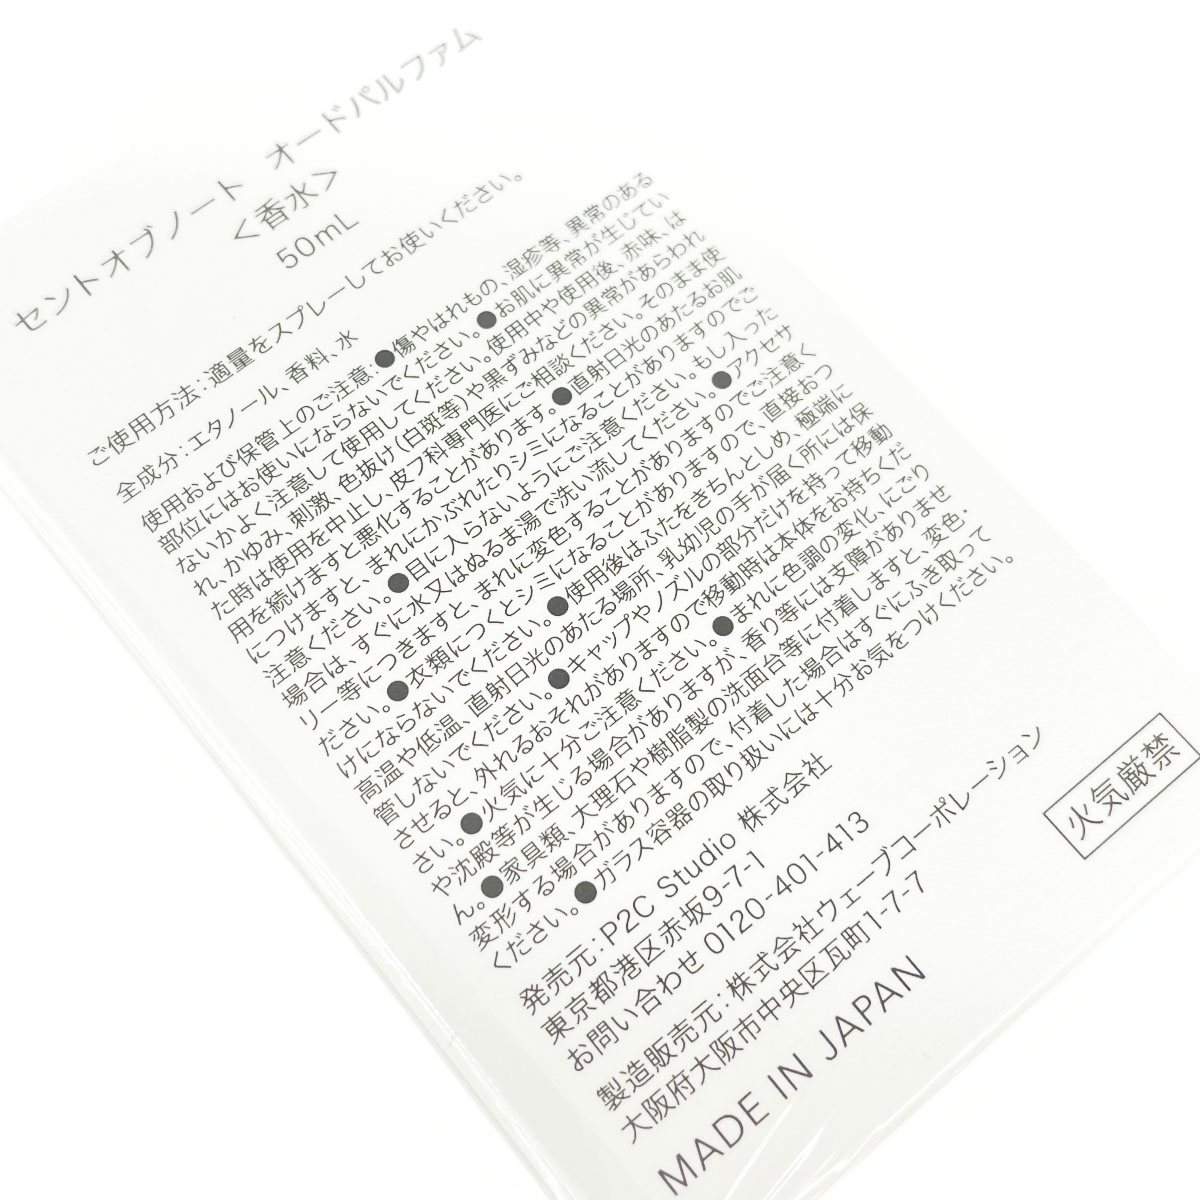 セントオブノート　オードパルファム
＜香水＞
50mL
ご使用方法：適量をスプレーしてお使いください。
全成分：エタノール、香料、水
使用および保管上のご注意：●傷やはれもの、湿疹等、異常のある
部位にはお使いにならないでください。●お肌に異常が生じてい
ないかよく注意して使用してください。使用中や使用後、赤味、は
れ、かゆみ、刺激、色抜け(白斑等)や黒ずみなどの異常があらわれ
た時は使用を中止し、皮フ科専門医にご相談ください。そのまま使
用を続けますと悪化することがあります。●直射日光のあたるお肌
につけますと、まれにかぶれたりシミになることがありますのでご
注意ください。●目に入らないようにご注意ください。もし入った
場合は、すぐに水又はぬるま湯で洗い流してください。●アクセサ
リー等につきますと、まれに変色することがありますのでご注意く
ださい。●衣類につくとシミになることがありますので、直接おつ
けにならないでください。●使用後はふたをきちんとしめ、極端に
高温や低温、直射日光のあたる場所、乳幼児の手が届く所には保
管しないでください。●キャップやノズルの部分だけを持って移動
させると、外れるおそれがありますので移動時は本体をお持ちくだ
さい。●火気に十分ご注意ください。●まれに色調の変化、にごり
や沈殿等が生じる場合がありますが、香り等には支障がありませ
ん。●家具類、大理石や樹脂製の洗面台等に付着しますと、変色・
変形する場合がありますので、付着した場合はすぐにふき取って
ください。●ガラス容器の取り扱いには十分お気をつけください。
発売元：P2C Studio 株式会社
東京都港区赤坂9-7-1
お問い合わせ 0120-401-413
製造販売元：株式会社ウェーブコーポレーション
大阪府大阪市中央区瓦町1-7-7
MADE IN JAPAN
火気厳禁